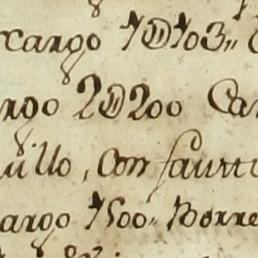 cargo 1@103,, C
rgo 2@200 Car
uillo, Con saurt
argo 1500,, Borre